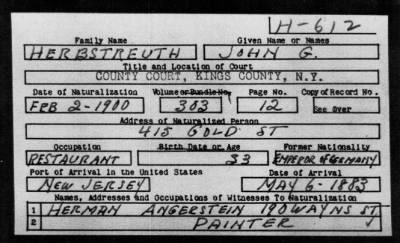 H-612
Family Name Given Name or Names
HERBSTREUTH JOHN G.
Title and Location of Court
COUNTY COURT, KINGS COUNTY, N.Y.
Date of Naturalization Volume or Bundle No. Page No. Copy of Record No.
FEB 2-1900 303 12 See Over
Address of Naturalized Person
415 GOLD ST
Occupation Birth Date or Age Former Nationality
RESTAURANT 33 EMPEROR of GERMANY
Port of Arrival in the United States Date of Arrival
NEW JERSEY MAY 6-1883
Names, Addresses and Occupations of Witnesses To Naturalization
1 HERMAN ANGERSTEIN 190 WAYNS ST
2 PAINTER